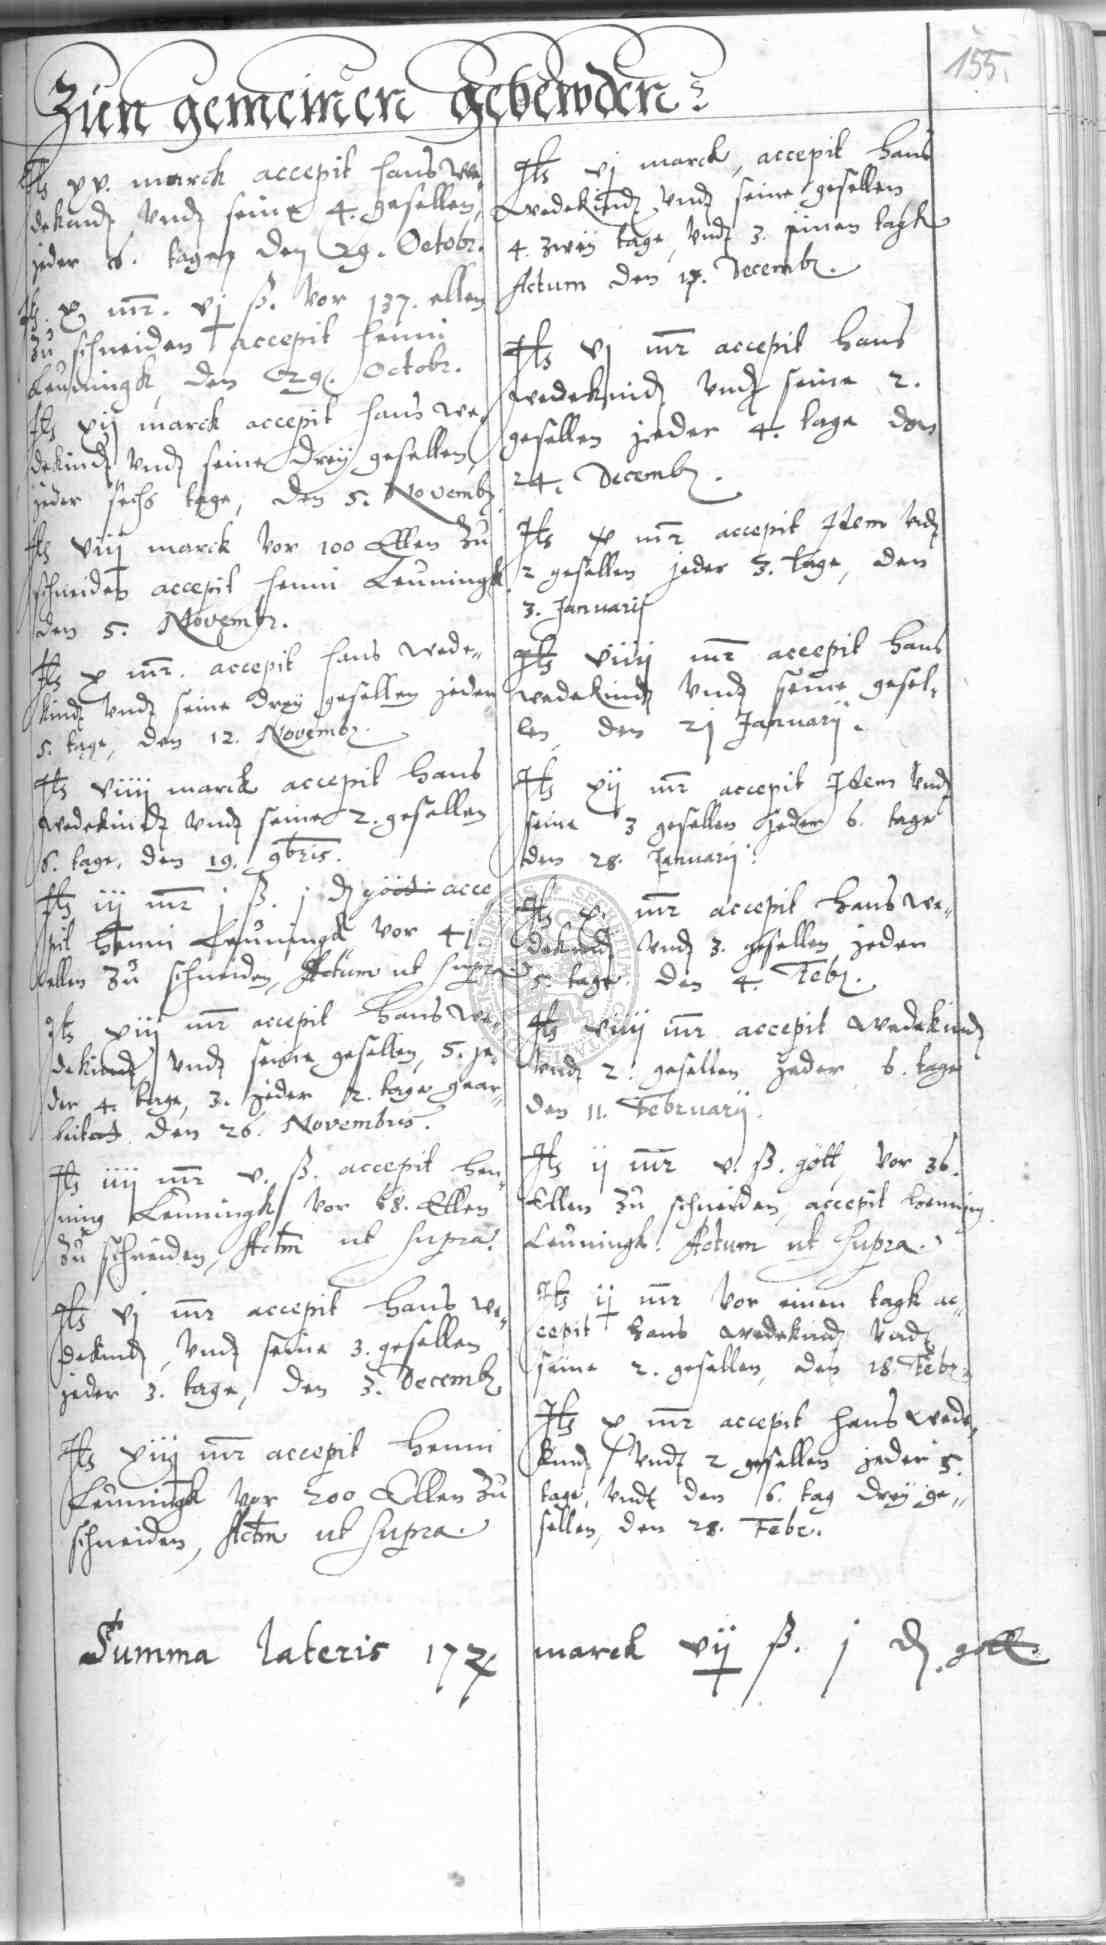 155.
Zun gemeinen gebewden
Its xv. marck accepit Hans We-
dekindt vndt seine 4. gesellen,
jeder 6. tage, den 29. Octobr.
Its x mr. vj ß. vor 137. ellen
zu schneiden accepit Henni
Leuningk, den 29. Octobr.
Its xij marck accepit Hans We-
dekindt vndt seine drey gesellen,
jeder sechs tage, den 5. Novemb.
Its viij marck vor 100 Ellen zu
schneiden accepit Henni Leuningk
den 5. Novembr.
Its x mr. accepit Hans Wede-
kindt vndt seine drey gesellen jeder
5. tage, den 12. Novembr.
Its viiij marck accepit Hans
Wedekindt vndt seine 2. gesellen
6. tage, den 19. 9bris.
Its iij mr j ß. j d gött. acce-
pit Henni Leuningk vor 41.
ellen zu schneiden, Actum ut supra
Its xiij mr accepit Hans We-
dekindt vndt seine gesellen, 5. je-
der 4. tage, 3. jeder 2. tage gear-
beitet, den 26. Novembris.
Its iiij mr v. ß. accepit Hen-
ning Leuningk vor 58. Ellen
zu schneiden, Actm ut supra.
Its vj mr accepit Hans We-
dekindt, vndt seine 3. gesellen
jeder 3. tage, den 3. Decemb.
Its xiij mr accepit Henni
Leuningk vor 200 Ellen zu
schneiden, Actm ut supra.
Its vj marck, accepit Hans
Wedekindt vndt seine gesellen
4. zwey tage, vndt 3. einen tagk
Actum den 17. Decemb.
Its vj mr accepit Hans
Wedekindt vndt seine 2.
gesellen jeder 4. tage den
24. Decemb.
Its x mr accepit Idem vndt
2 gesellen jeder 3. tage, den
3. Januarij
Its viiij mr accepit Hans
Wedekindt vndt seine gesel-
len, den 21 Januarij.
Its xij mr accepit Idem vndt
seine 3 gesellen jeder 6. tage
den 28. Januarij.
Its x. mr accepit Hans We-
dekindt vndt 3. gesellen jeder
5. tage den 4. Feb.
Its viiij mr accepit Wedekindt
vndt 2. gesellen jeder 6. tage
den 11. Februarij.
Its ij mr v. ß. gött, vor 36.
Ellen zu schneiden, accepit Henning
Leuningk. Actum ut supra.
Its ij mr vor einen tagk ac-
cepit Hans Wedekindt vndt
seine 2. gesellen, den 18. Febr.
Its x mr accepit Hans Wede-
kindt, vndt 2 gesellen jeder 5.
tage, vndt den 6. tag drey ge-
sellen, den 28. Febr.
Summa lateris marck vij ß. j d. gött.